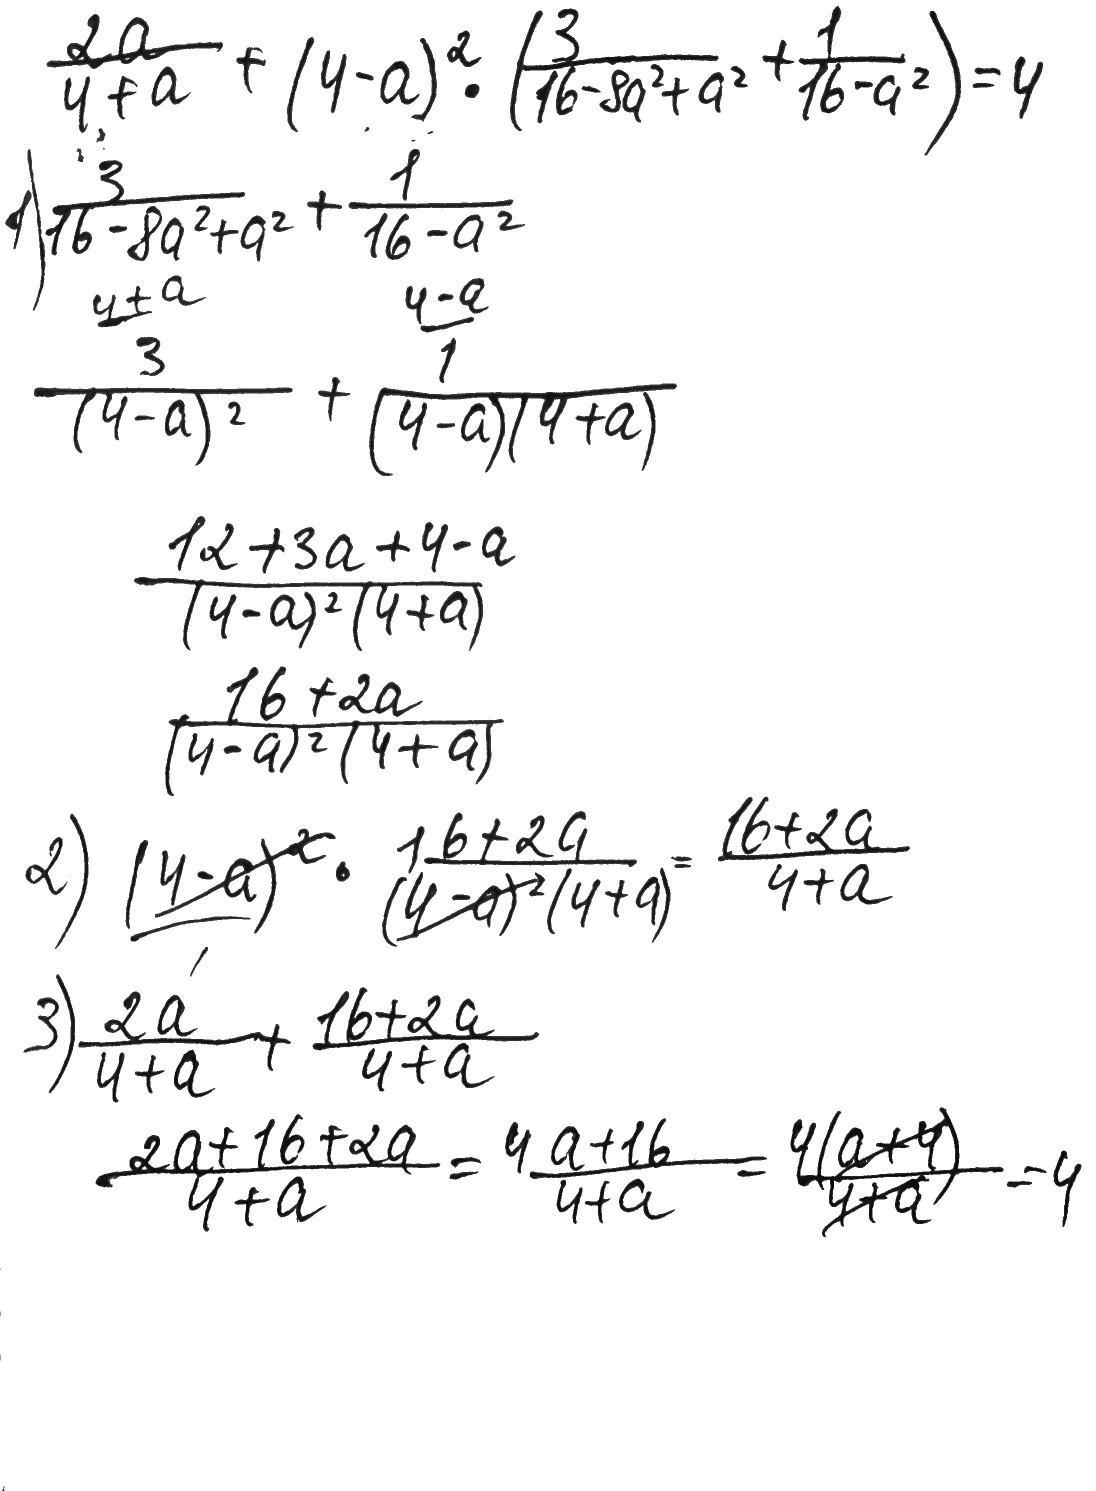 2a/(4+a) + (4-a)² · (3/(16-8a²+a²) + 1/(16-a²)) = 4
1) 3/(16-8a²+a²) + 1/(16-a²)
4+a 4-a
3/(4-a)² + 1/((4-a)(4+a))
(12+3a+4-a)/((4-a)²(4+a))
(16+2a)/((4-a)²(4+a))
2) (4-a)² · (16+2a)/((4-a)²(4+a)) = (16+2a)/(4+a)
3) 2a/(4+a) + (16+2a)/(4+a)
(2a+16+2a)/(4+a) = (4a+16)/(4+a) = 4(a+4)/(4+a) = 4